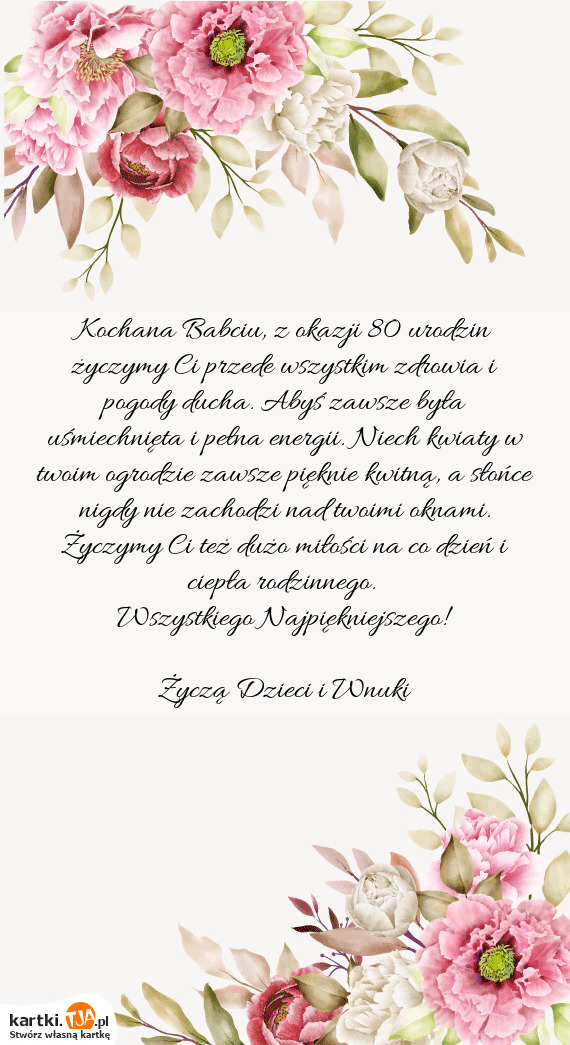 Kochana Babciu, z okazji 80 urodzin
życzymy Ci przede wszystkim zdrowia i
pogody ducha. Abyś zawsze była
uśmiechnięta i pełna energii. Niech kwiaty w
twoim ogrodzie zawsze pięknie kwitną, a słońce
nigdy nie zachodzi nad twoimi oknami.
Życzymy Ci też dużo miłości na co dzień i
ciepła rodzinnego.
Wszystkiego Najpiękniejszego!
Życzą Dzieci i Wnuki
kartki.TJA.pl
Stwórz własną kartkę